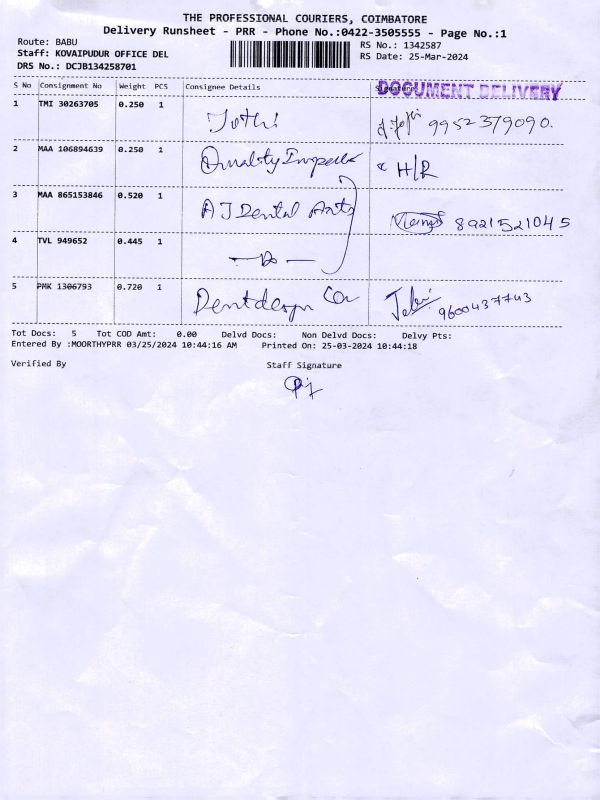 THE PROFESSIONAL COURIERS, COIMBATORE
Delivery Runsheet - PRR - Phone No.:0422-3505555 - Page No.:1
Route: BABU
Staff: KOVAIPUDUR OFFICE DEL
DRS No.: DCJB134258701
RS No.: 1342587
RS Date: 25-Mar-2024
S No Consignment No Weight PCS Consignee Details Signature
DOCUMENT DELIVERY
1 TMI 30263705 0.250 1 Jothi 9952379090.
2 MAA 106894639 0.250 1 Quality H/R
3 MAA 865153846 0.520 1 A J Dental Arts 8921521045
4 TVL 949652 0.445 1 — Do —
5 PMK 1306793 0.720 1 Dentdesign 9600437743
Tot Docs: 5 Tot COD Amt: 0.00 Delvd Docs: Non Delvd Docs: Delvy Pts:
Entered By :MOORTHYPRR 03/25/2024 10:44:16 AM Printed On: 25-03-2024 10:44:18
Verified By Staff Signature